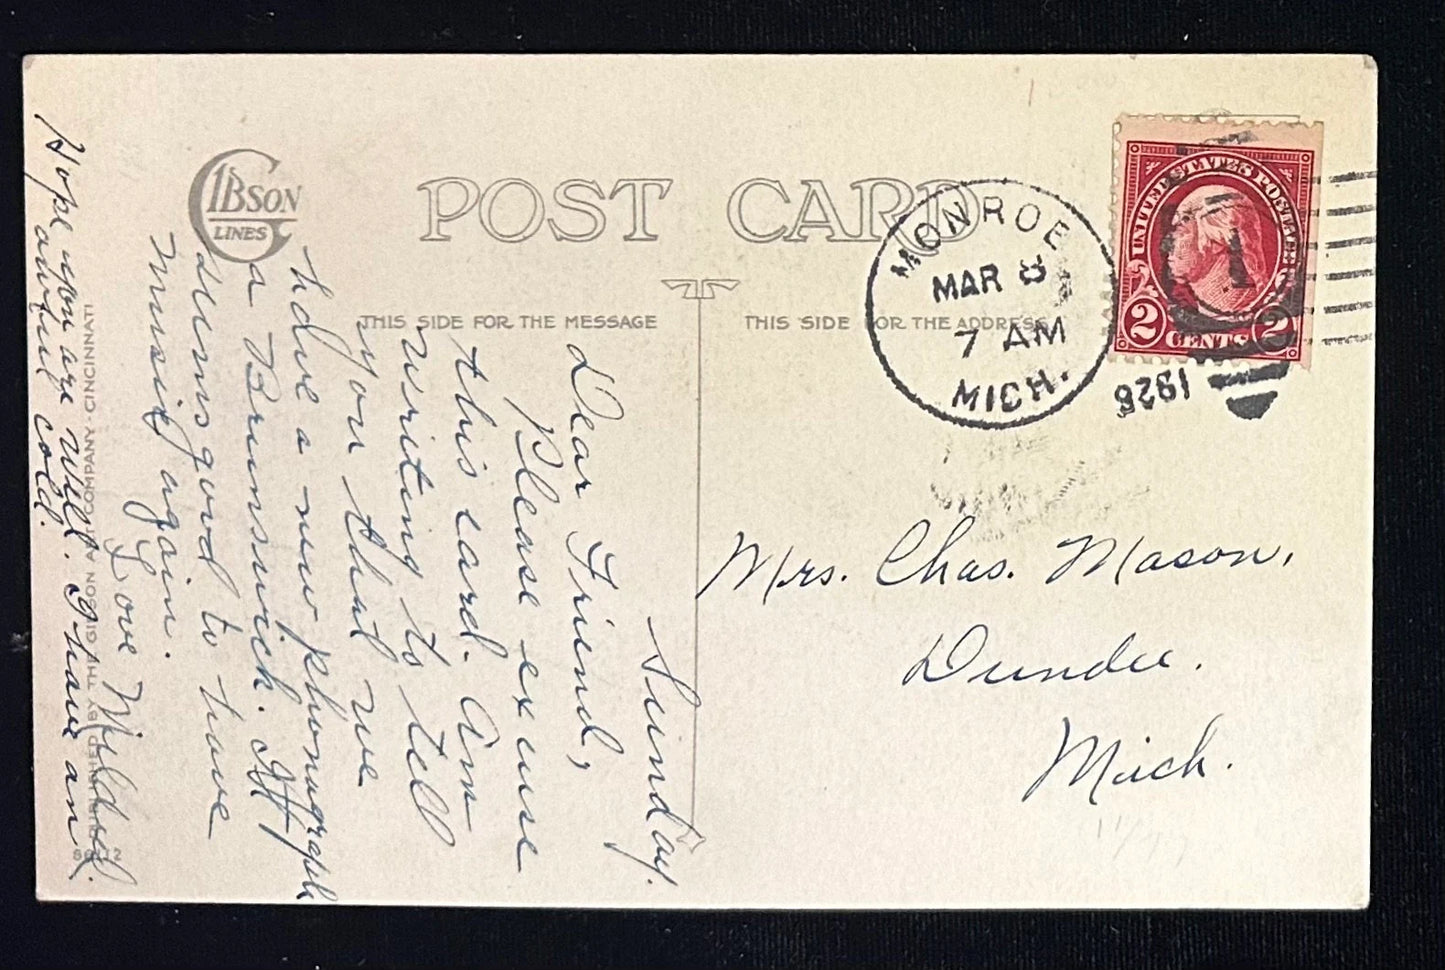 GIBSON
LINES
POST CARD
THIS SIDE FOR THE MESSAGE
THIS SIDE FOR THE ADDRESS
MONROE
MAR 8
7 AM
MICH.
1926
UNITED STATES POSTAGE
2 CENTS 2
1
Mrs. Chas. Mason,
Dundee.
Mich.
Sunday.
Dear Friend,
Please excuse
this card. Am
writing to tell
you that we
have a new phonograph
a Brunswick. It
seems good to have
music again.
Love Mildred.
Hope you are well. I have an
awful cold.
PUBLISHED BY THE GIBSON ART COMPANY - CINCINNATI